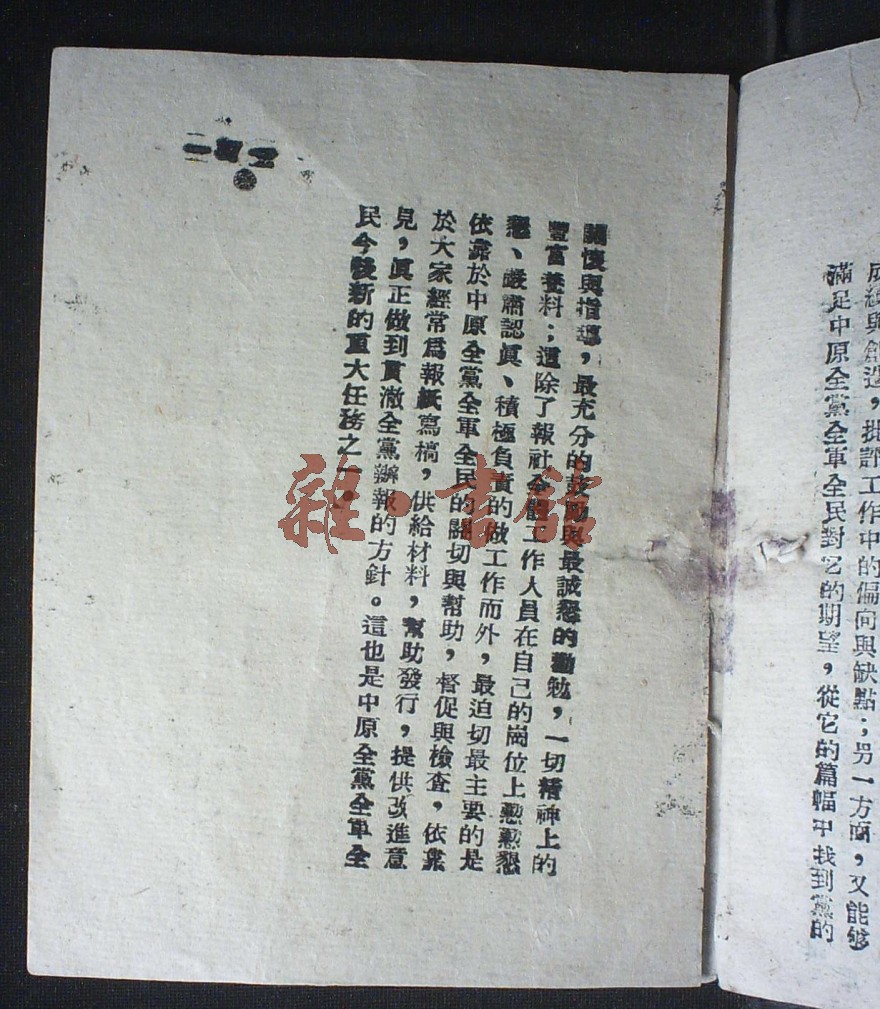 成績與創造，批評工作中的偏向與缺點；另一方面，又能够
滿足中原全黨全軍全民對它的期望，從它的篇幅中找到黨的
關懷與指導，最充分的鼓勵與最誠懇的勸勉，一切精神上的
豐富養料；這除了報社全體工作人員在自己的崗位上懃懃懇
懇、嚴肅認眞、積極負責的做工作而外，最迫切最主要的是
依靠於中原全黨全軍全民的關切與幫助，督促與檢查，依靠
於大家經常爲報紙寫稿，供給材料，幫助發行，提供改進意
見，眞正做到貫澈全黨辦報的方針。這也是中原全黨全軍全
民今後新的重大任務之一。
雜·書館